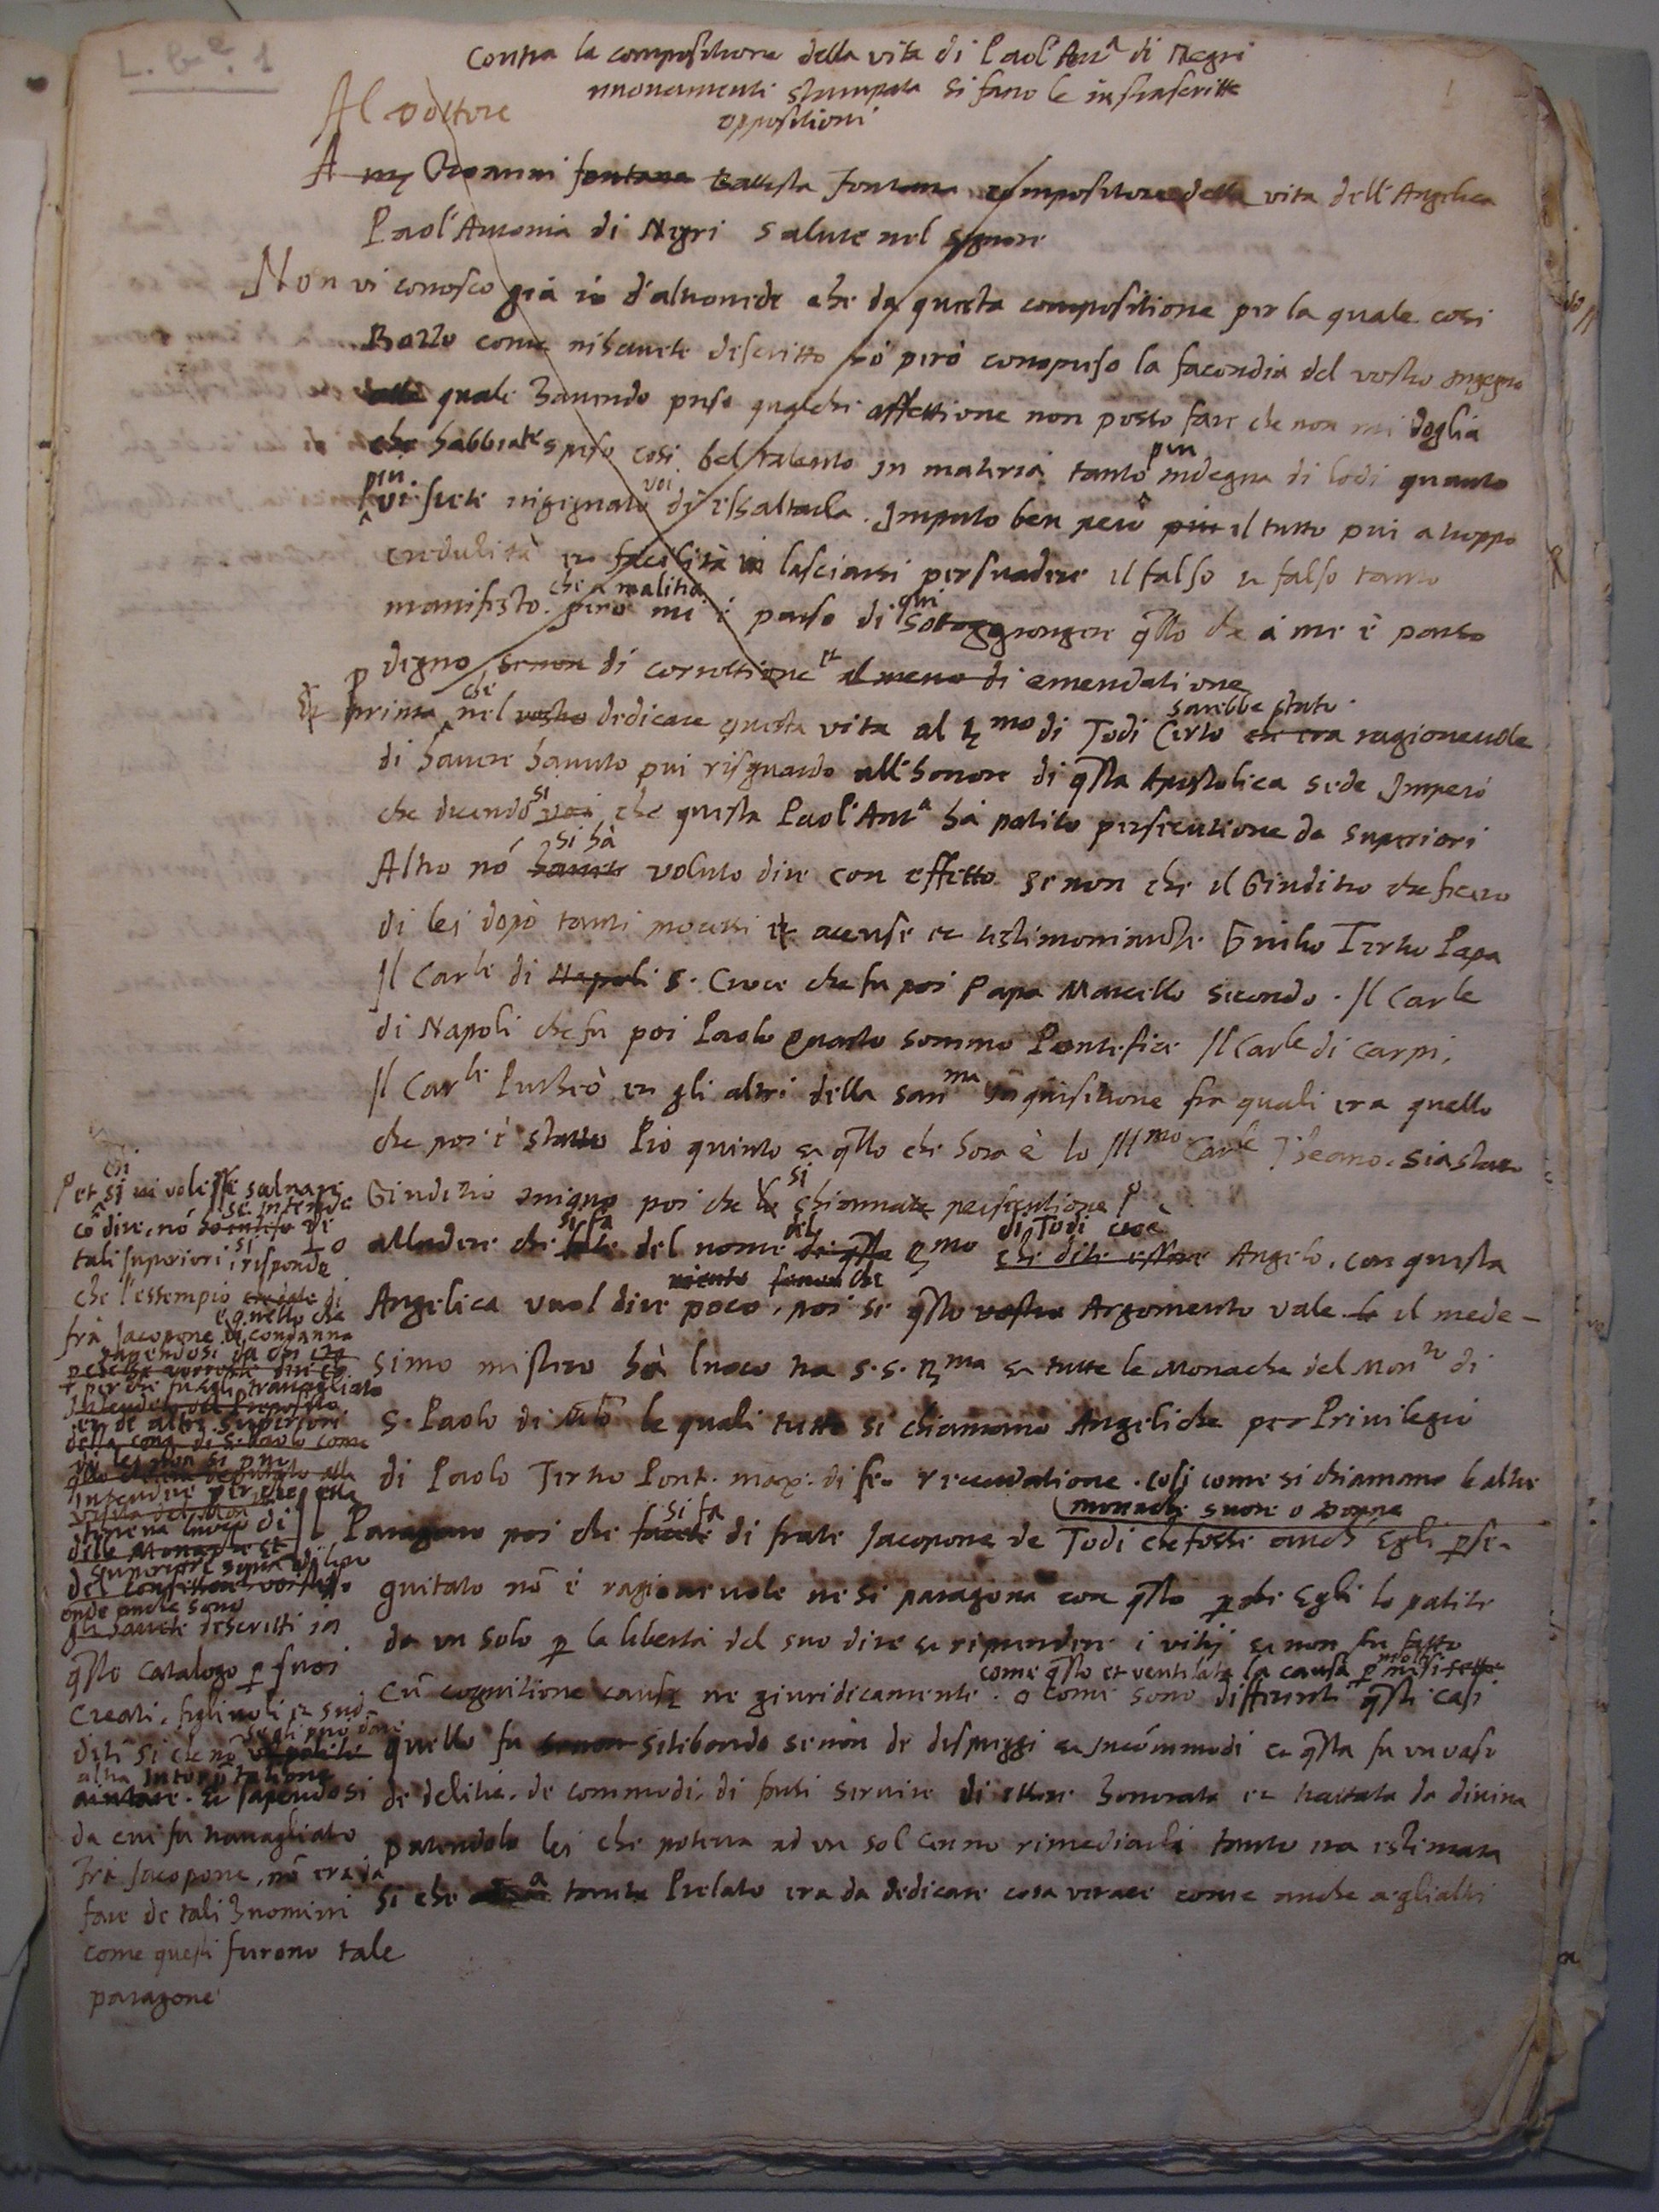 L. b.e. 1
Contra la compositione della vita di Paol' Ant.a di Negri
nuovamente stampata si fano le infrascritte
oppositioni
Al Dottore
A m Giovanni fontana Battista fontana compositore della vita dell' Angelica
Paol' Antonia di Negri salute nel signore
Non vi conosco già io d'altronde che da questa compositione per la quale cosi
Rozzo come vi havete descritto hò però compreso la facondia del vostro ingegno
dalla quale havendo preso qualche affettione non posso fare che non mi doglia
che habbiate speso cosi bel talento in materia tanto piu indegna di lodi quanto
piu vi siete ingegnato voi di essaltarla. Imputo ben però piu il tutto piu a troppo
credulità et facilità in lasciarsi persuadere il falso et falso tanto
manifesto. che a malitia però mi è parso di qui sotoggiongere q̃llo che à me è parso
degno se non di correttione et al meno di emendatione
Et prima che nel vostro dedicare questa vita al R.mo di Todi Certo sarebbe stato er era ragionevole
di havere havuto piu risguardo all' honore di q̃sta Apostolica sede Imperò
che dicendo si voi che questa Paol' Ant.a hà patito persecutione da superiori
Altro nõ si hà havete voluto dire con effetto se non che il Giuditio che fecero
di lei dopò tanti processi et accuse et testimonianze Giulio Tertio Papa
Il Car.le di Napoli S. Croce che fu poi Papa Marcello secondo. Il Car.le
di Napoli che fu poi Paolo Quarto sommo Pontefice Il Car.le di Carpi,
Il Car.le Putheò et gli altri della san.ma Inquisitione fra quali era quello
che poi è stato Pio quinto et q̃llo che hora è lo Ill.mo Car.le Theano. sia stato
Giuditio iniquo poi che la si chiamate persecutione
alludere che si fa fate del nome del de q̃sto R.mo di Todi cioè che dite essere Angelo, con questa
Angelica vuol dire poco, niente senon che poi se q̃sto vostro Argomento vale la il mede-
simo mistero hà luoco tra S. S. R.ma et tutte le Monache del Mon.ro di
S. Paolo di Mlõ le quali tutte si chiamano Angeliche per Privilegio
di Paolo Tertio Pont. max. di fe. recordatione. cosi come si chiamano le altre
monache suore o Donne
Paragone poi che si fa facede di frate Jacopone de Todi che fosse anch' Egli pse-
guitato nõ è ragionevole ne si paragona con q̃sto pche Egli lo patite
da un solo p la libertà del suo dire et riprendere i vitij et non fu fatto
cũ cognitione causę ne giuridicamente. come q̃sto et ventilata la causa p molti mesi sette o come sono differenti q̃sti casi
quello fu senon sitibondo se nõn de dispreggi et Incõmmodi et q̃sta fu un vaso
de delitie, de commodi, di farsi servire di essere honorata et trattata da divina
patendolo lei che poteva ad un sol cenno rimediarli tanto era estimata
Si che a tanto Prelato era da dedicare cosa verace come anche a gli altri
et chi si vi volesse salvare
cõ dire, nõ se intende ho inteso de
tali superiori si risponde
che l'essempio di
frà Jacopone è quello che condanna
sapendosi da chi
perche fu egli travagliato
et de altri superiori
della cong. di S. Paolo come
di lei non si puo
intendere perche ella
teneva luoco di
delle Monache et
superiore
del confessore
onde anche sono
gli havete descritti in
q̃sto Catalogo p suoi
Creati, figlivoli et sud-
diti si che nõ se gli può dare
altra
et sapendosi
da cui fu travagliato
frà Jacopone, nõ era da
fare de tali huomini
come questi furono tale
paragone